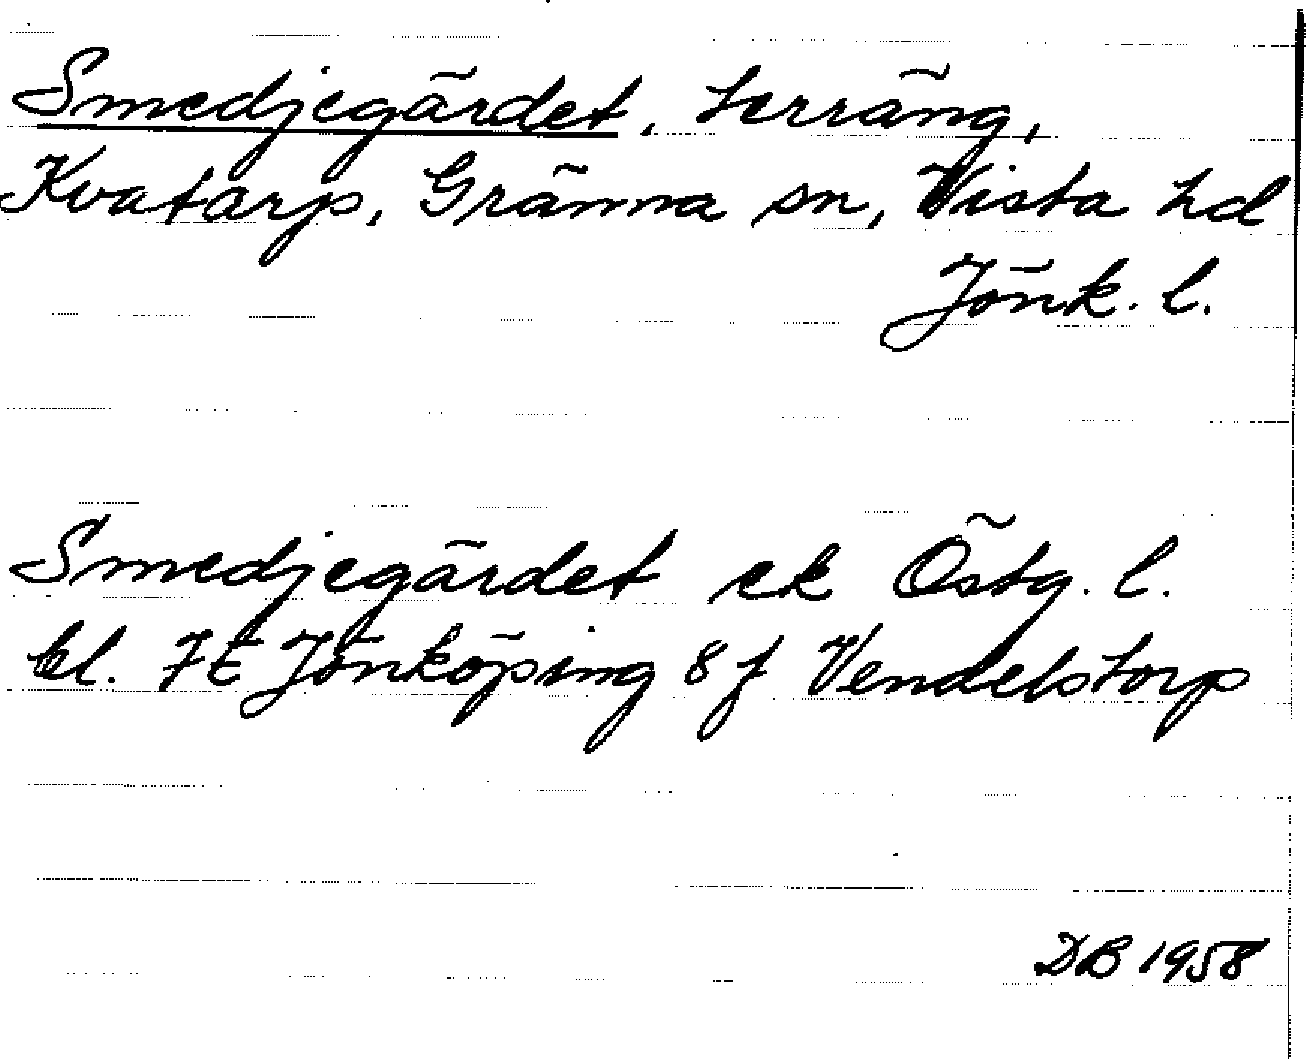 Smedjegärdet, terräng,
Kvatarp, Gränna sn, Vista hd
Jönk. l.
Smedjegärdet ek Östg. l.
bl. 7E Jönköping 8f Vendelstorp
DB 1958